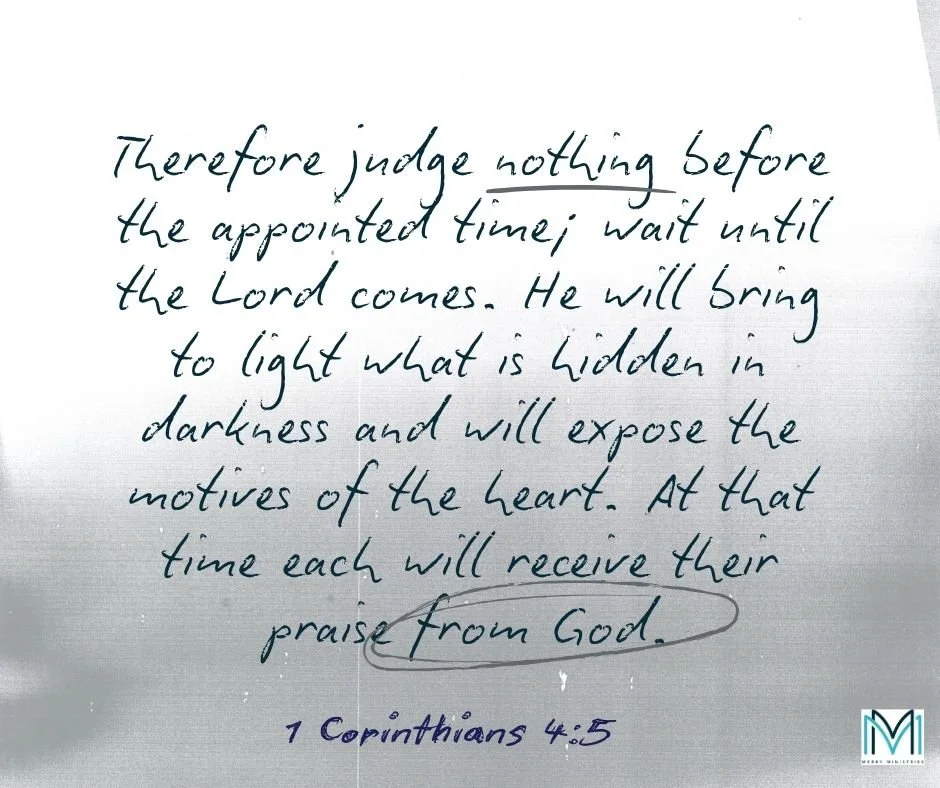 Therefore judge nothing before
the appointed time; wait until
the Lord comes. He will bring
to light what is hidden in
darkness and will expose the
motives of the heart. At that
time each will receive their
praise from God.
1 Corinthians 4:5
MERRY MINISTRIES